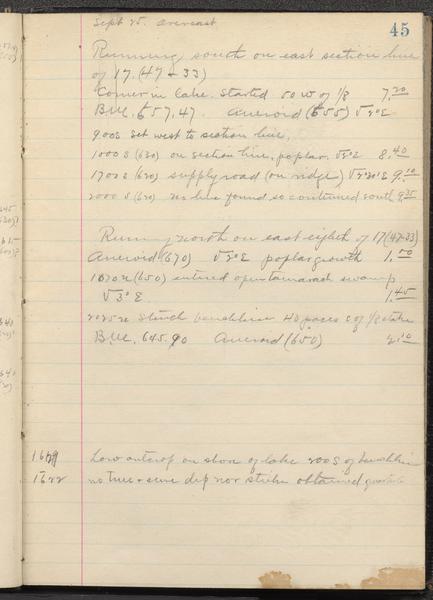 45
Sept 25. overcast
Running south on east section line
of 17. (47-33)
Corner in lake. Started 50 W of 1/8 7.20
B.M. 657.47. Aneroid (655) √2°E
900 S set west to section line.
1000 S (630) on section line, poplar. √2°E 8.40
1700 S (620) supply road (on ridge) √2°30'E 9.10
2000 S (620) no line found so continued south 9.35
Running north on east eighth of 17 (47-33)
Aneroid (670) √2°E poplar growth 1.00
1670 N (650) entered open tamarack swamp
√3°E. 1.45
2025 N struck 40 paces S of 1/8 stake
B.M. 645.90 Aneroid (650) 2.10
Low outcrop on shore of lake 200 S of
1622 no true dip nor strike obtained